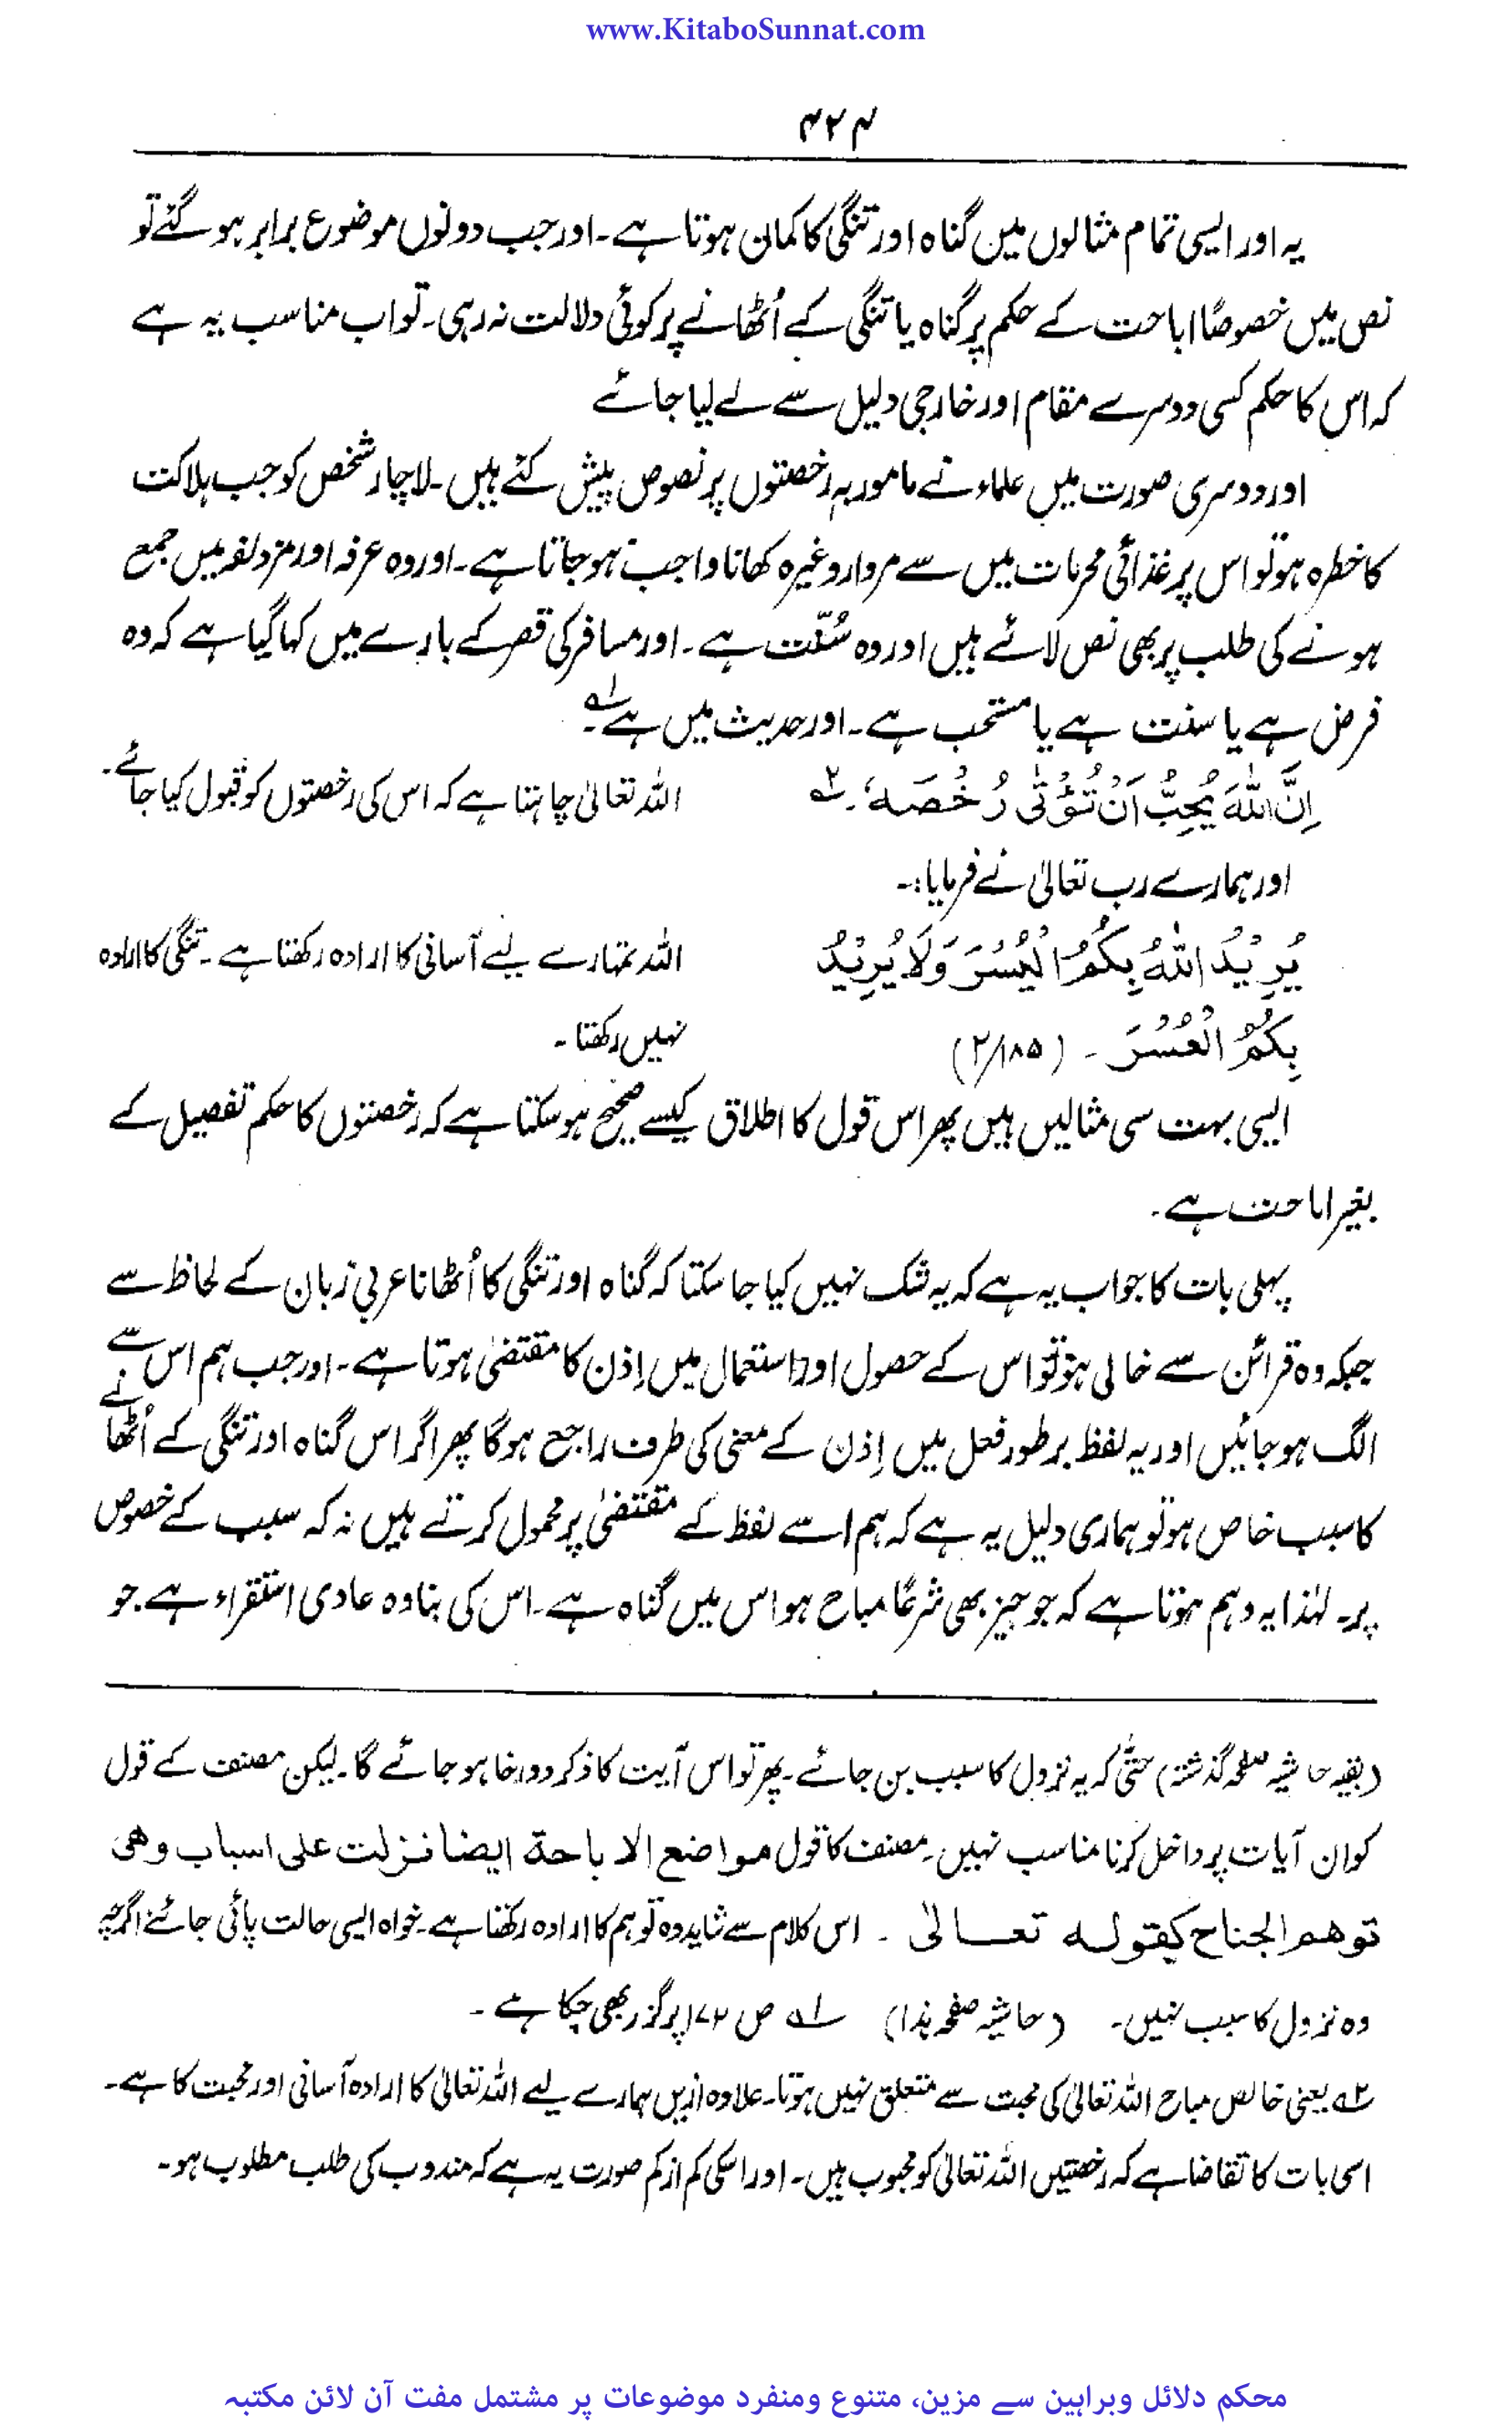 www.KitaboSunnat.com
۴۲۴
یہ اور ایسی تمام مثالوں میں گناہ اور تنگی کا گمان ہوتا ہے۔ اور جب دونوں موضوع برابر ہو گئے تو
نص میں خصوصًا اباحت کے حکم پر گناہ یا تنگی کے اُٹھانے پر کوئی دلالت نہ رہی۔ تو اب مناسب یہ ہے
کہ اس کا حکم کسی دوسرے مقام اور خارجی دلیل سے لے لیا جائے
اور دوسری صورت میں علماء نے مامور بہ رخصتوں پر نصوص پیش کئے ہیں۔ لاچار شخص کو جب ہلاکت
کا خطرہ ہو تو اس پر غذائی محرمات میں سے مردار وغیرہ کھانا واجب ہو جاتا ہے۔ اور وہ عرفہ اور مزدلفہ میں جمع
ہونے کی طلب پر بھی نص لائے ہیں اور وہ سُنّت ہے۔ اور مسافر کی قصر کے بارے میں کہا گیا ہے کہ وہ
فرض ہے یا سنت ہے یا مستحب ہے۔ اور حدیث میں ہے۔ ۱ے
اِنَّ اللّٰهَ يُحِبُّ اَنْ تُؤْتٰی رُخُصَهٗ۔ ۲ے
اللہ تعالیٰ چاہتا ہے کہ اس کی رخصتوں کو قبول کیا جائے۔
اور ہمارے رب تعالیٰ نے فرمایا:۔
يُرِيْدُ اللّٰهُ بِكُمُ الْيُسْرَ وَلَا يُرِيْدُ
بِكُمُ الْعُسْرَ ۔ (۲/۱۸۵)
اللہ تمہارے لیے آسانی کا ارادہ رکھتا ہے۔ تنگی کا ارادہ
نہیں رکھتا۔
ایسی بہت سی مثالیں ہیں پھر اس قول کا اطلاق کیسے صحیح ہو سکتا ہے کہ رخصتوں کا حکم تفصیل کے
بغیر اباحت ہے۔
پہلی بات کا جواب یہ ہے کہ یہ شک نہیں کیا جا سکتا کہ گناہ اور تنگی کا اُٹھانا عربی زبان کے لحاظ سے
جبکہ وہ قرائن سے خالی ہو تو اس کے حصول اور استعمال میں اِذن کا مقتضیٰ ہوتا ہے۔ اور جب ہم اس سے
الگ ہو جائیں اور یہ لفظ برطور فعل میں اِذن کے معنی کی طرف راجع ہوگا پھر اگر اس گناہ اور تنگی کے اُٹھانے
کا سبب خاص ہو تو ہماری دلیل یہ ہے کہ ہم اسے لفظ کے مقتضیٰ پر محمول کرتے ہیں نہ کہ سبب کے خصوص
پر۔ لہٰذا یہ وہم ہوتا ہے کہ جو چیز بھی شرعًا مباح ہو اس میں گناہ ہے۔ اس کی بنا وہ عادی استقراء ہے۔ جو
(بقیہ حاشیہ صفحہ گذشتہ) حتّٰی کہ یہ نزول کا سبب بن جائے۔ پھر تو اس آیت کا ذکر دو رخا ہو جائے گا۔ لیکن مصنف کے قول
کو ان آیات پر داخل کرنا مناسب نہیں۔ مصنف کا قول مواضع الاباحة ايضا نزلت على اسباب وهى
توهم الجناح كقوله تعالىٰ ۔ اس کلام سے شاید وہ توہم کا ارادہ رکھتا ہے۔ خواہ ایسی حالت پائی جائے اگرچہ
وہ نزول کا سبب نہیں۔ (حاشیہ صفحہ ہذا) ۱ے ص ۱۷۲ پر گزر بھی چکا ہے۔
۲ے یعنی خالص مباح اللہ تعالیٰ کی محبت سے متعلق نہیں ہوتا۔ علاوہ ازیں ہمارے لیے اللہ تعالیٰ کا ارادہ آسانی اور محبت کا ہے۔
اسی بات کا تقاضا ہے کہ رخصتیں اللہ تعالیٰ کو محبوب ہیں۔ اور اسکی کم از کم صورت یہ ہے کہ مندوب کی طلب مطلوب ہو۔
محکم دلائل وبراہین سے مزین، متنوع ومنفرد موضوعات پر مشتمل مفت آن لائن مکتبہ